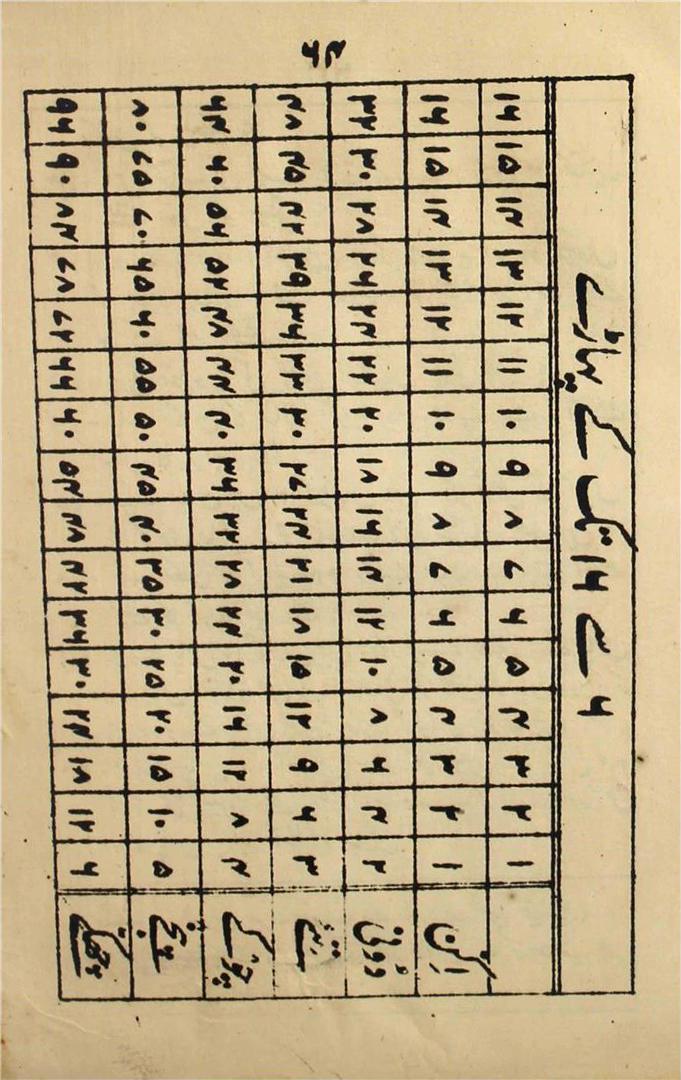 ۶ سے ۱۶ تک کے پہاڑے
۱ ۲ ۳ ۴ ۵ ۶ ۷ ۸ ۹ ۱۰ ۱۱ ۱۲ ۱۳ ۱۴ ۱۵ ۱۶
اِکن ۱ ۲ ۳ ۴ ۵ ۶ ۷ ۸ ۹ ۱۰ ۱۱ ۱۲ ۱۳ ۱۴ ۱۵ ۱۶
دونی ۲ ۴ ۶ ۸ ۱۰ ۱۲ ۱۴ ۱۶ ۱۸ ۲۰ ۲۲ ۲۴ ۲۶ ۲۸ ۳۰ ۳۲
۳ ۶ ۹ ۱۲ ۱۵ ۱۸ ۲۱ ۲۴ ۲۷ ۳۰ ۳۳ ۳۶ ۳۹ ۴۲ ۴۵ ۴۸
چوکے ۴ ۸ ۱۲ ۱۶ ۲۰ ۲۴ ۲۸ ۳۲ ۳۶ ۴۰ ۴۴ ۴۸ ۵۲ ۵۶ ۶۰ ۶۴
پنجے ۵ ۱۰ ۱۵ ۲۰ ۲۵ ۳۰ ۳۵ ۴۰ ۴۵ ۵۰ ۵۵ ۶۰ ۶۵ ۷۰ ۷۵ ۸۰
چھکے ۶ ۱۲ ۱۸ ۲۴ ۳۰ ۳۶ ۴۲ ۴۸ ۵۴ ۶۰ ۶۶ ۷۲ ۷۸ ۸۴ ۹۰ ۹۶